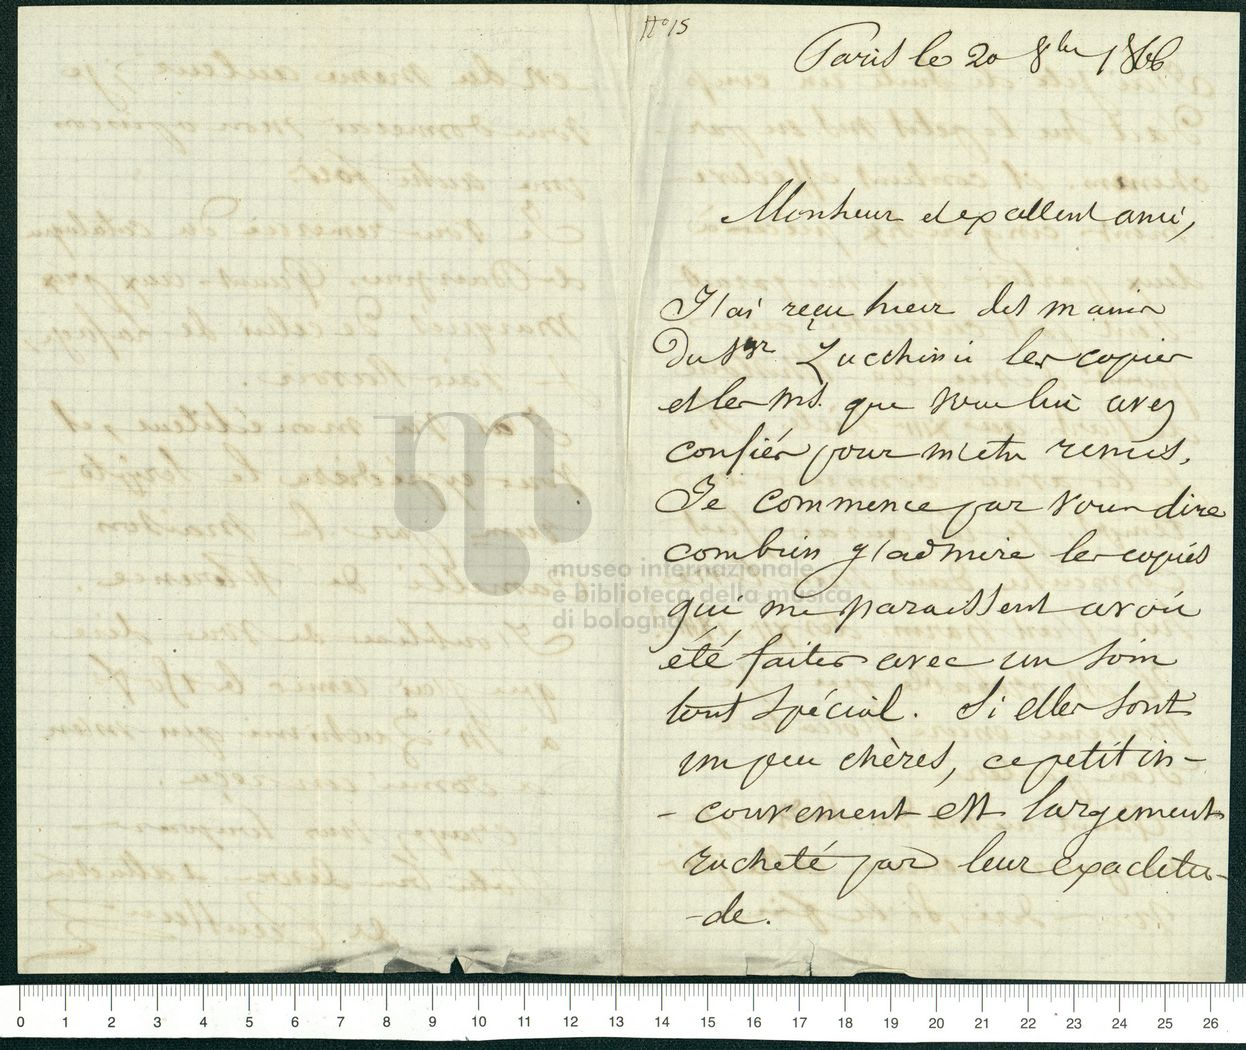 N° 15
Paris le 20 8bre 1866
Monsieur et excellent ami,
J'ai reçu hier des mains
du Sgr Zucchini les copies
et les ms. que vous lui avez
confiés pour m'etre remis.
Je commence par vous dire
combien j'admire les copies
qui me paraissent avoir
été faites avec un soin
tout spécial. Si elles sont
un peu chères, ce petit in-
-convenient est largement
racheté par leur exactitu-
-de.
museo internazionale
e biblioteca della musica
di bologna
0 1 2 3 4 5 6 7 8 9 10 11 12 13 14 15 16 17 18 19 20 21 22 23 24 25 26